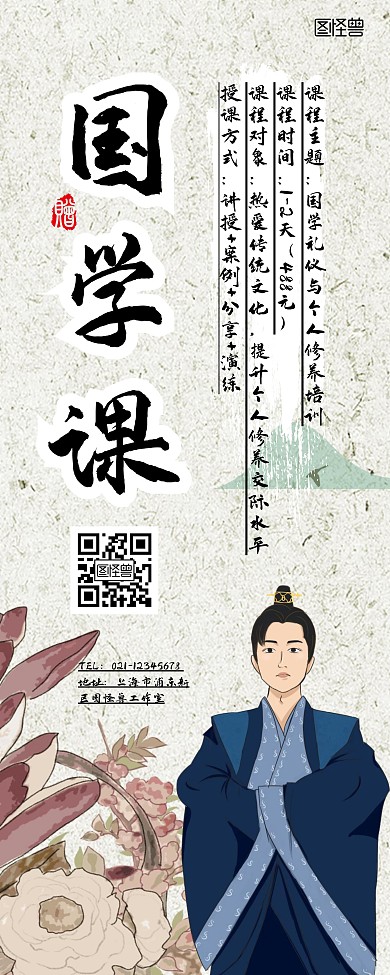 图怪兽
国学课
赠
课程主题：国学礼仪与个人修养培训
课程时间：1-2天（488元）
课程对象：热爱传统文化，提升个人修养交际水平
授课方式：讲授+案例+分享+演练
图怪兽
TEL: 021-12345678
地址：上海市浦东新
区图怪兽工作室